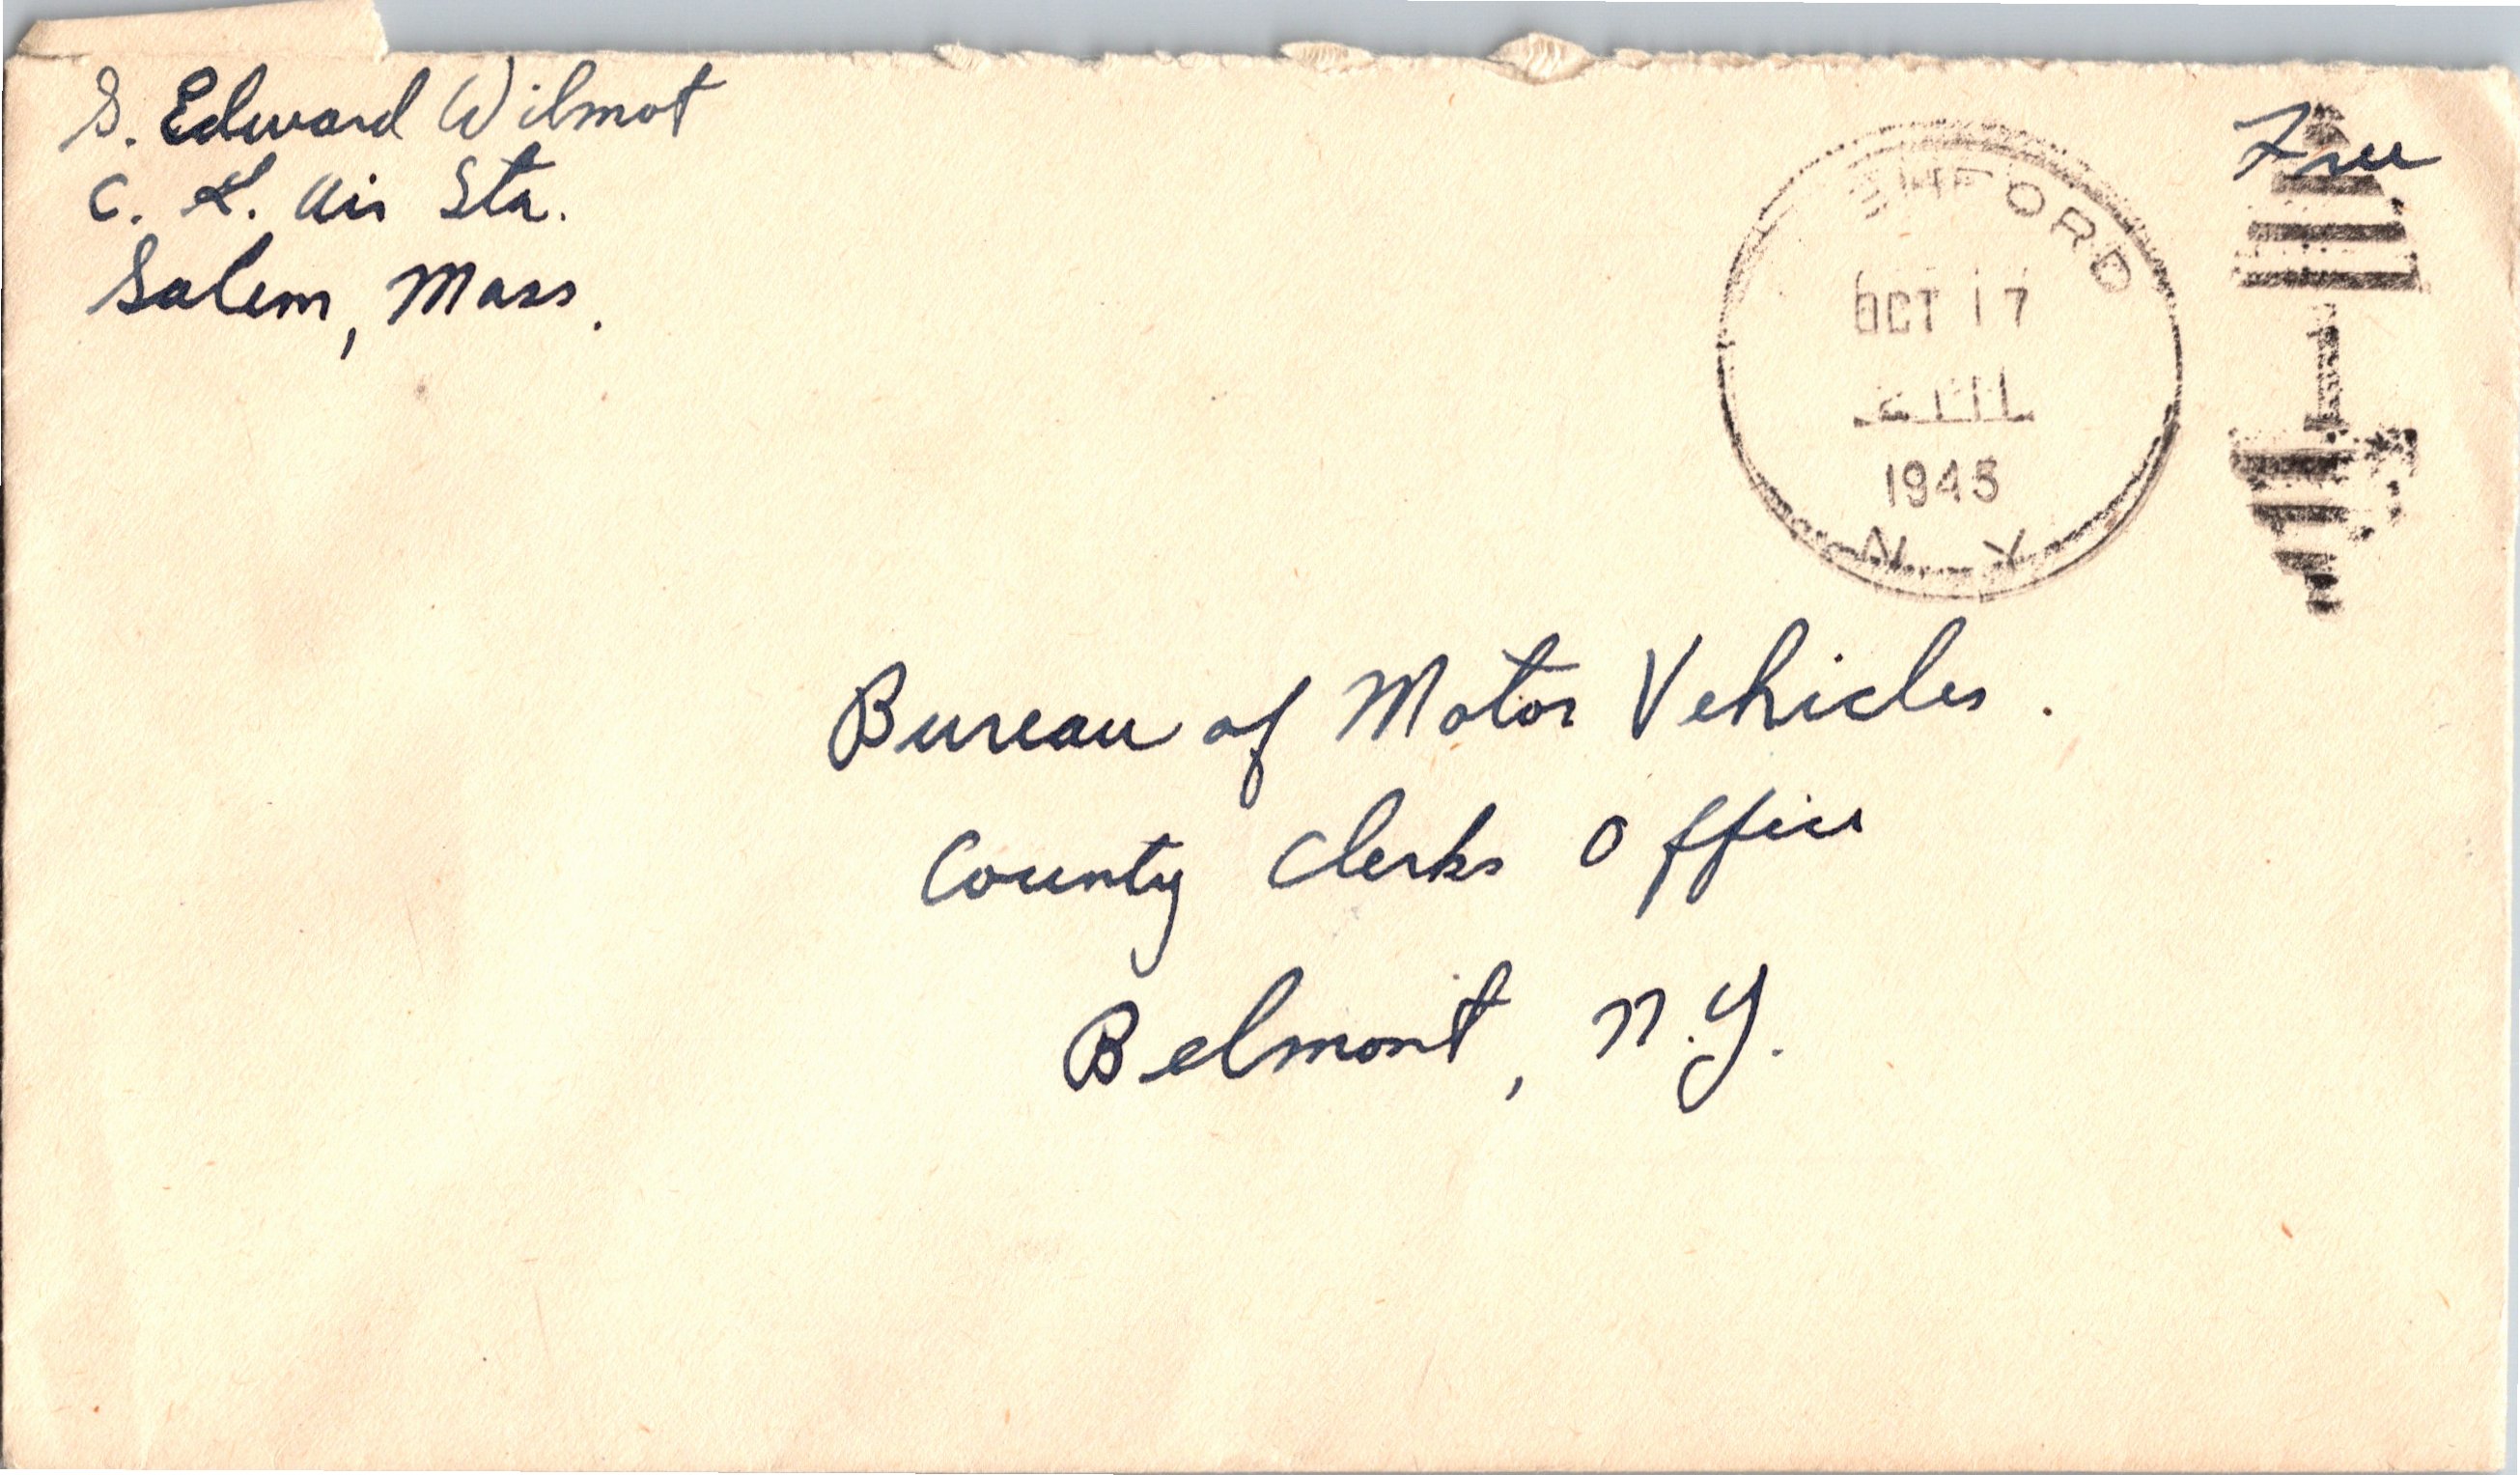 S. Edward Wilmot
C. G. Air Sta.
Salem, Mass.
Free
OCT 17
1945
N. Y.
Bureau of Motor Vehicles.
County Clerks Office
Belmont, N.Y.